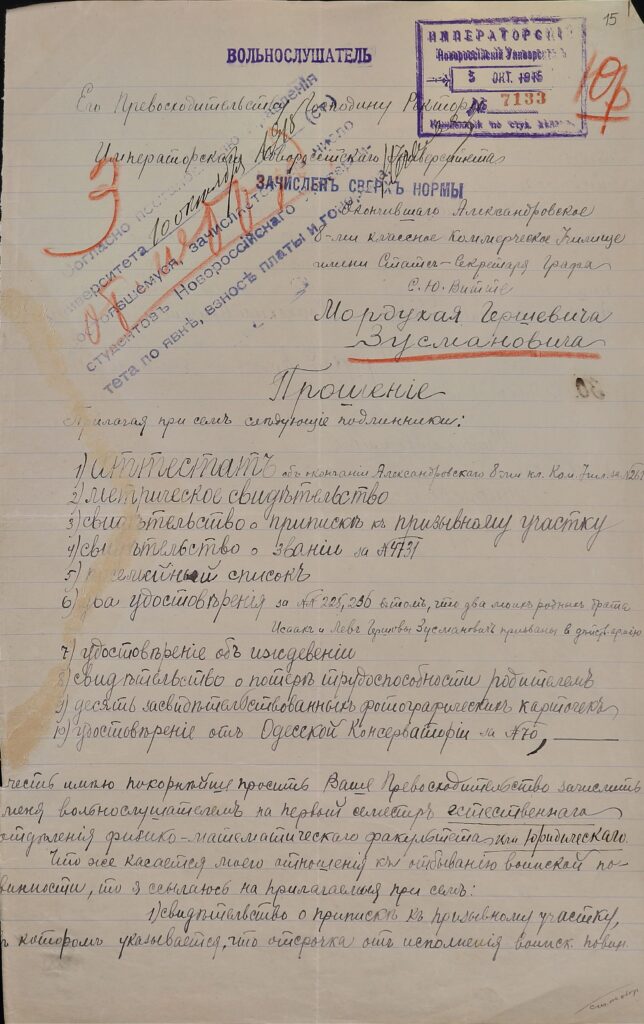 15
ВОЛЬНОСЛУШАТЕЛЬ
ИМПЕРАТОРСКІЙ
Новороссійскій Университетъ
5 ОКТ. 1915
№ 7133
10 р
Его Превосходительству Господину Ректору
Императорскаго Новороссійскаго Университета
ЗАЧИСЛЕНЪ СВЕРХЪ НОРМЫ
Согласно постановленію
Университета 10 октября
зачисляется число
студентовъ Новороссійскаго
тета по явкѣ, взносѣ платы и
3
Окончившаго Александровское
8-ми классное Коммерческое Училище
имени Статсъ-Секретаря Графа
С. Ю. Витте
Мордухая Гершевича
Зусмановича
30
Прошеніе
Прилагая при семъ слѣдующіе подлинники:
1) аттестатъ объ окончаніи Александровскаго 8-ми кл. Ком. Учил. за №
2) метрическое свидѣтельство
3) свидѣтельство о припискѣ къ призывному участку
4) свидѣтельство о званіи за №4731
5) посемейный списокъ
6) два удостовѣренія за №№ 225, 236 въ томъ, что два моихъ родныхъ брата
Исаакъ и Левъ Гершовы Зусмановичъ призваны въ дѣйств. армію
7) удостовѣреніе объ иждевеніи
8) свидѣтельство о потерѣ трудоспособности родителемъ
9) десять засвидѣтельствованныхъ фотографическихъ карточекъ
10) удостовѣреніе отъ Одесской Консерваторіи за №70,
честь имѣю покорнѣйше просить Ваше Превосходительство зачислить
меня вольнослушателемъ на первый семестръ естественнаго
отдѣленія физико-математическаго факультета или Юридическаго.
Что же касается моего отношенія къ отбыванію воинской по-
винности, то я ссылаюсь на прилагаемыя при семъ:
1) свидѣтельство о припискѣ къ призывному участку,
въ которомъ указывается, что отсрочка отъ исполненія воинск. повин.